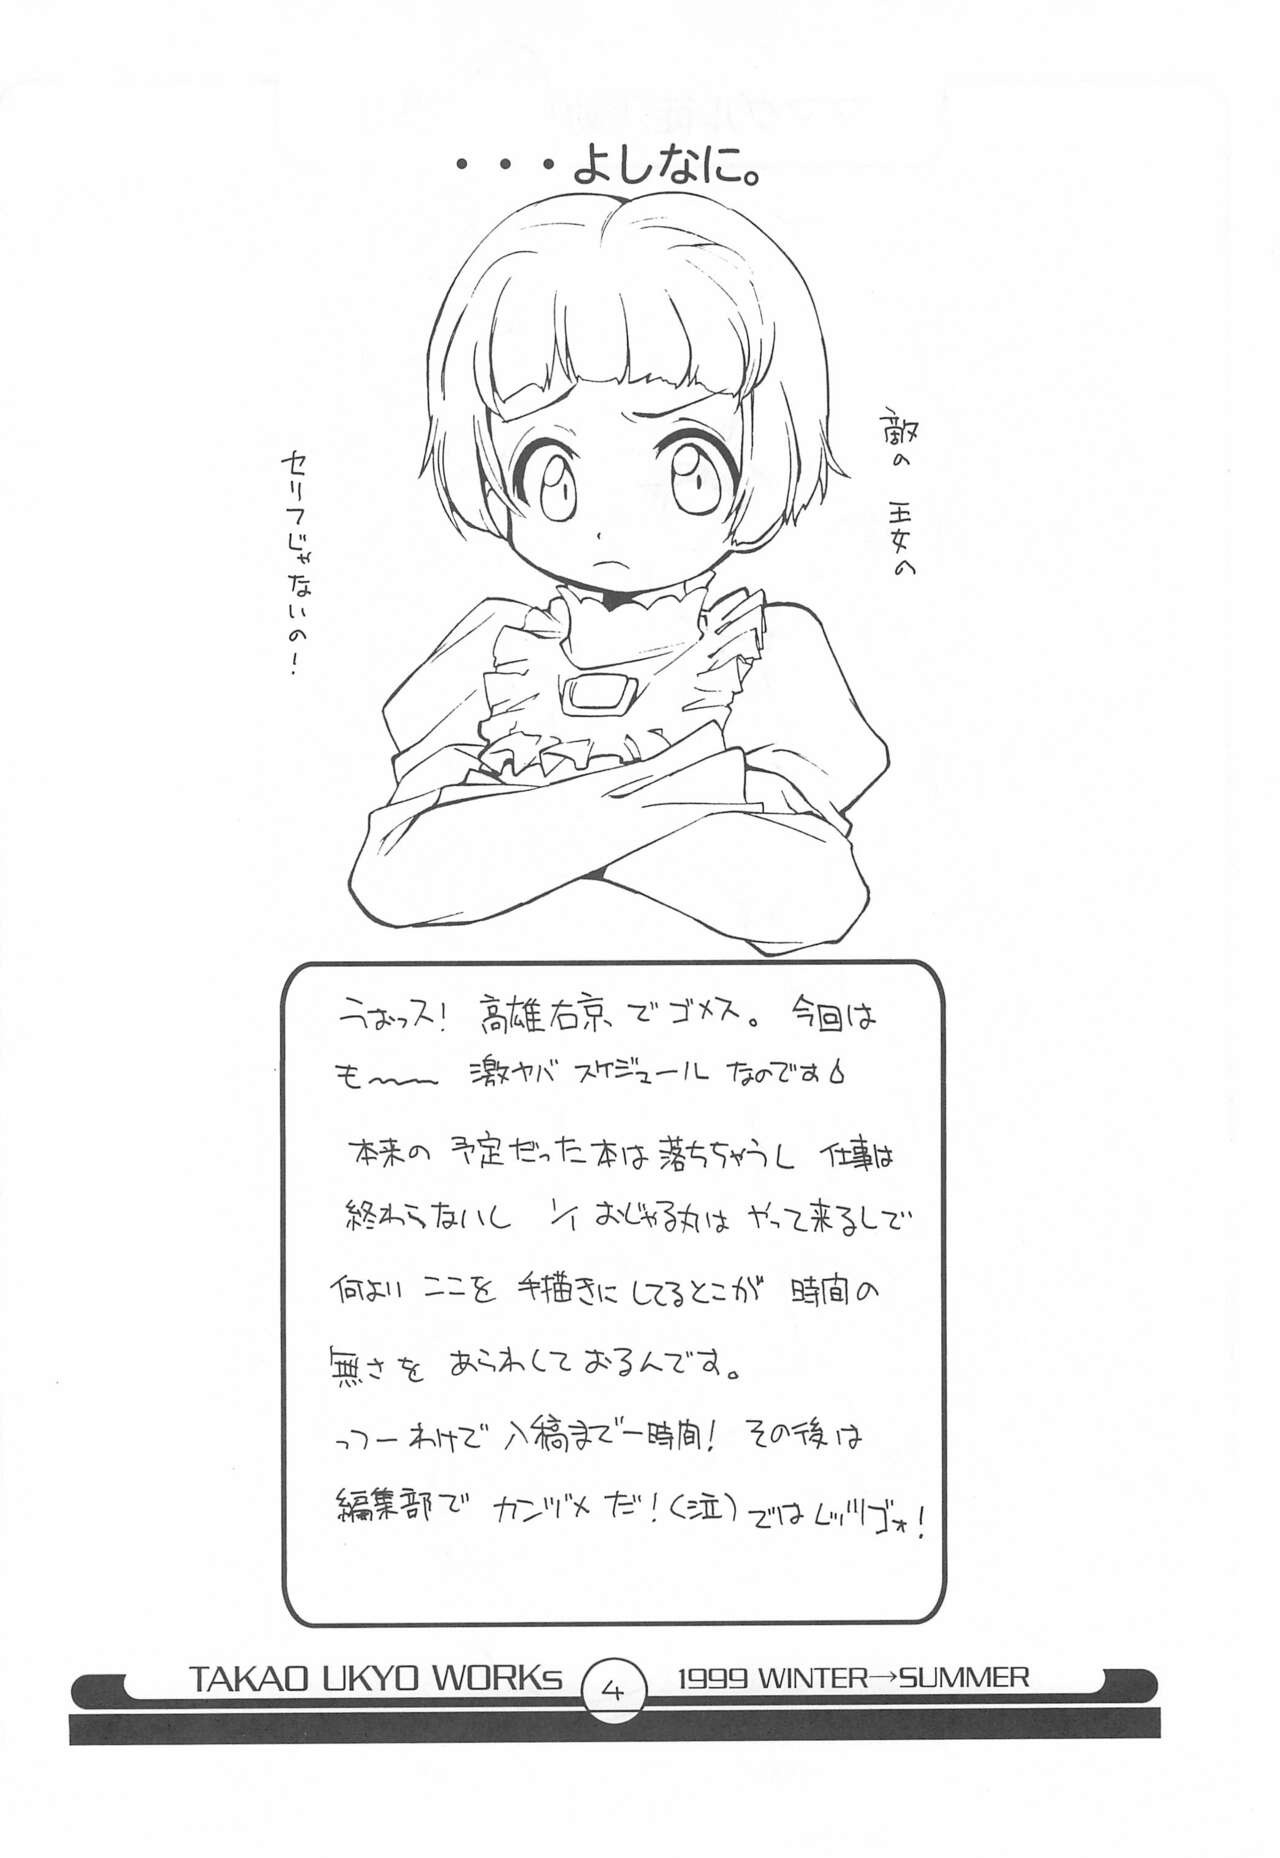 ・・・よしなに。
敵の 王女の
セリフじゃないの！
うおっス！ 高雄右京、でゴメス。 今回は
も〜〜 激ヤバ スケジュール なのです
本来の 予定だった本は 落ちちゃうし 仕事は
終わらないし おじゃる丸は やって来るしで
何よい ここを 手描きに してるとこが 時間の
無さを あらわして おるんです。
っつーわけで 入稿まで一時間！ その後は
編集部で カンヅメ だ！（泣） では レッツゴォ！
TAKAO UKYO WORKs 4 1999 WINTER→SUMMER